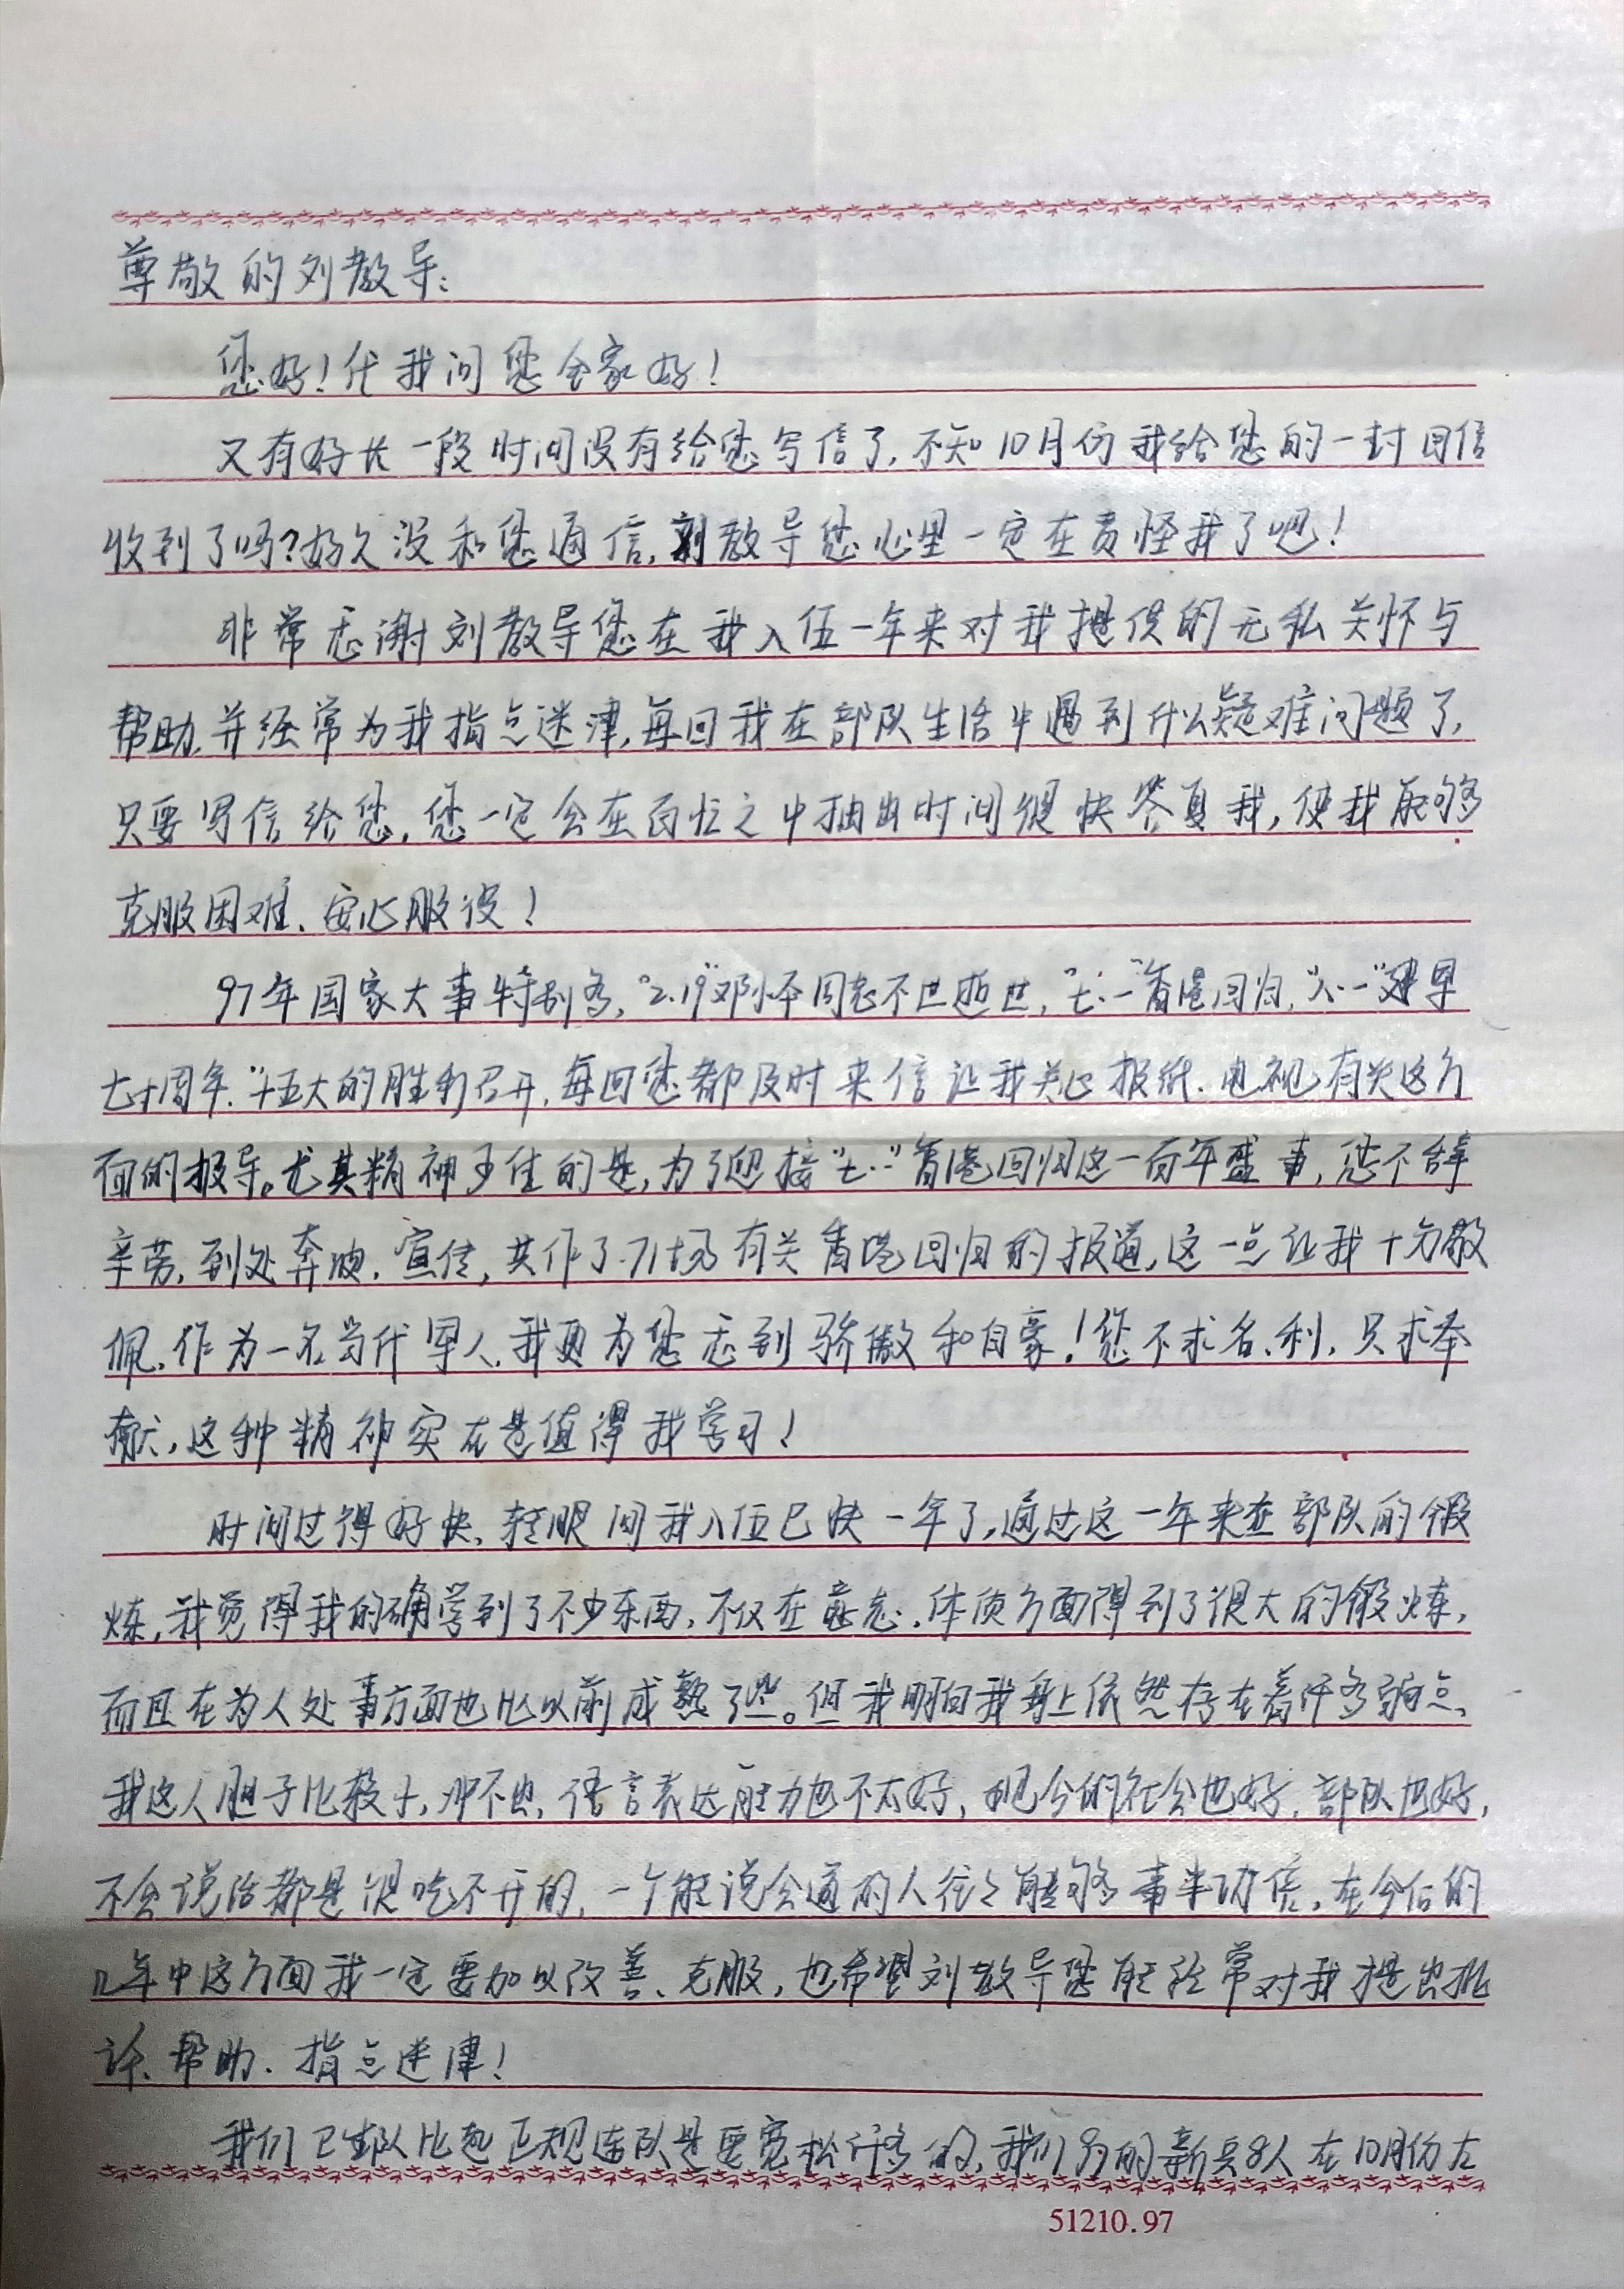 尊敬的刘教导:
您好!代我问您全家好!
又有好长一段时间没有给您写信了,不知10月份我给您的一封回信
收到了吗?好久没和您通信,刘教导您心里一定在责怪我了吧!
非常感谢刘教导您在我入伍一年来对我提供的无私关怀与
帮助,并经常为我指点迷津,每回我在部队生活中遇到什么疑难问题了,
只要写信给您,您一定会在百忙之中抽出时间很快答复我,使我能够
克服困难、安心服役!
97年国家大事特别多,"2.19"邓小平同志不世逝世,"七·一"香港回归,"八·一"建军
七十周年,"十五大的胜利召开,每回您都及时来信让我关心报纸、电视有关这方
面的报导。尤其精神可佳的是,为了迎接"七·一"香港回归这一百年盛事,您不辞
辛劳,到处奔波、宣传,共作了71场有关香港回归的报道,这一点让我十分敬
佩,作为一名当代军人,我更为您感到骄傲和自豪!您不求名、利,只求奉
献,这种精神实在是值得我学习!
时间过得好快,转眼间我入伍已快一年了,通过这一年来在部队的锻
炼,我觉得我的确学到了不少东西,不仅在意志、体质方面得到了很大的锻炼,
而且在为人处事方面也比以前成熟了些。但我明白我身上依然存在着许多弱点,
我这人胆子比较小,冲不出,语言表达能力也不太好,现今的社会也好,部队也好,
不会说话都是很吃不开的,一个能说会道的人往々能够事半功倍,在今后的
几年中这方面我一定要加以改善、克服,也希望刘教导您能经常对我提出批
评、帮助、指点迷津!
我们卫生队比起正规连队是要宽松许多的,我们的新兵8人在10月份左
51210.97